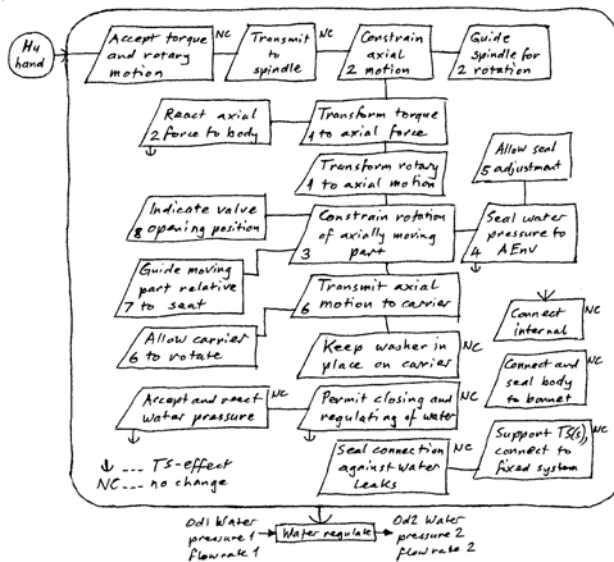 Hu
hand
Accept torque
and rotary
motion
NC
Transmit
to
spindle
NC
Constrain
axial
2 motion
Guide
spindle for
2 rotation
React axial
2 force to body
Transform torque
1 to axial force
Transform rotary
1 to axial motion
Allow seal
5 adjustment
Indicate valve
8 opening position
Constrain rotation
of axially moving
3 part
Seal water
pressure to
4 AEnv
Guide moving
part relative
7 to seat
Transmit axial
6 motion to carrier
Connect
internal
NC
Allow carrier
6 to rotate
Keep washer in
place on carrier
NC
Connect and
seal body
to bonnet
NC
Accept and react
water pressure
NC
Permit closing and
regulating of water
NC
Support TS(s),
connect to
fixed system
NC
Seal connection
against water
leaks
NC
↓ --- TS-effect
NC --- no change
Od1 Water
pressure 1
flow rate 1
Water regulate
Od2 Water
pressure 2
flow rate 2